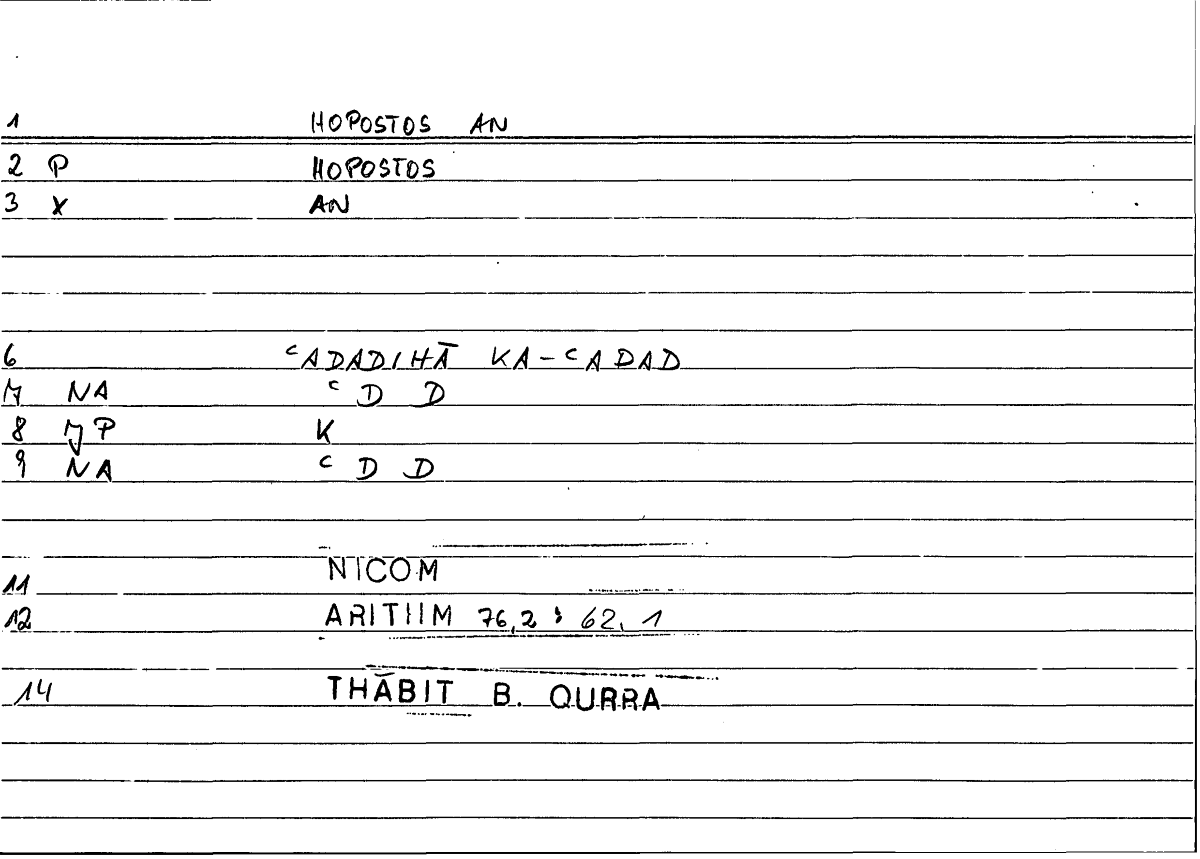 1 HOPOSTOS AN
2 P HOPOSTOS
3 X AN
6 ᶜADADIHĀ KA-ᶜADAD
7 NA ᶜ D D
8 7 P K
9 NA ᶜ D D
11 NICOM
12 ARITIIM 76,2 ; 62, 1
14 THĀBIT B. QURRA